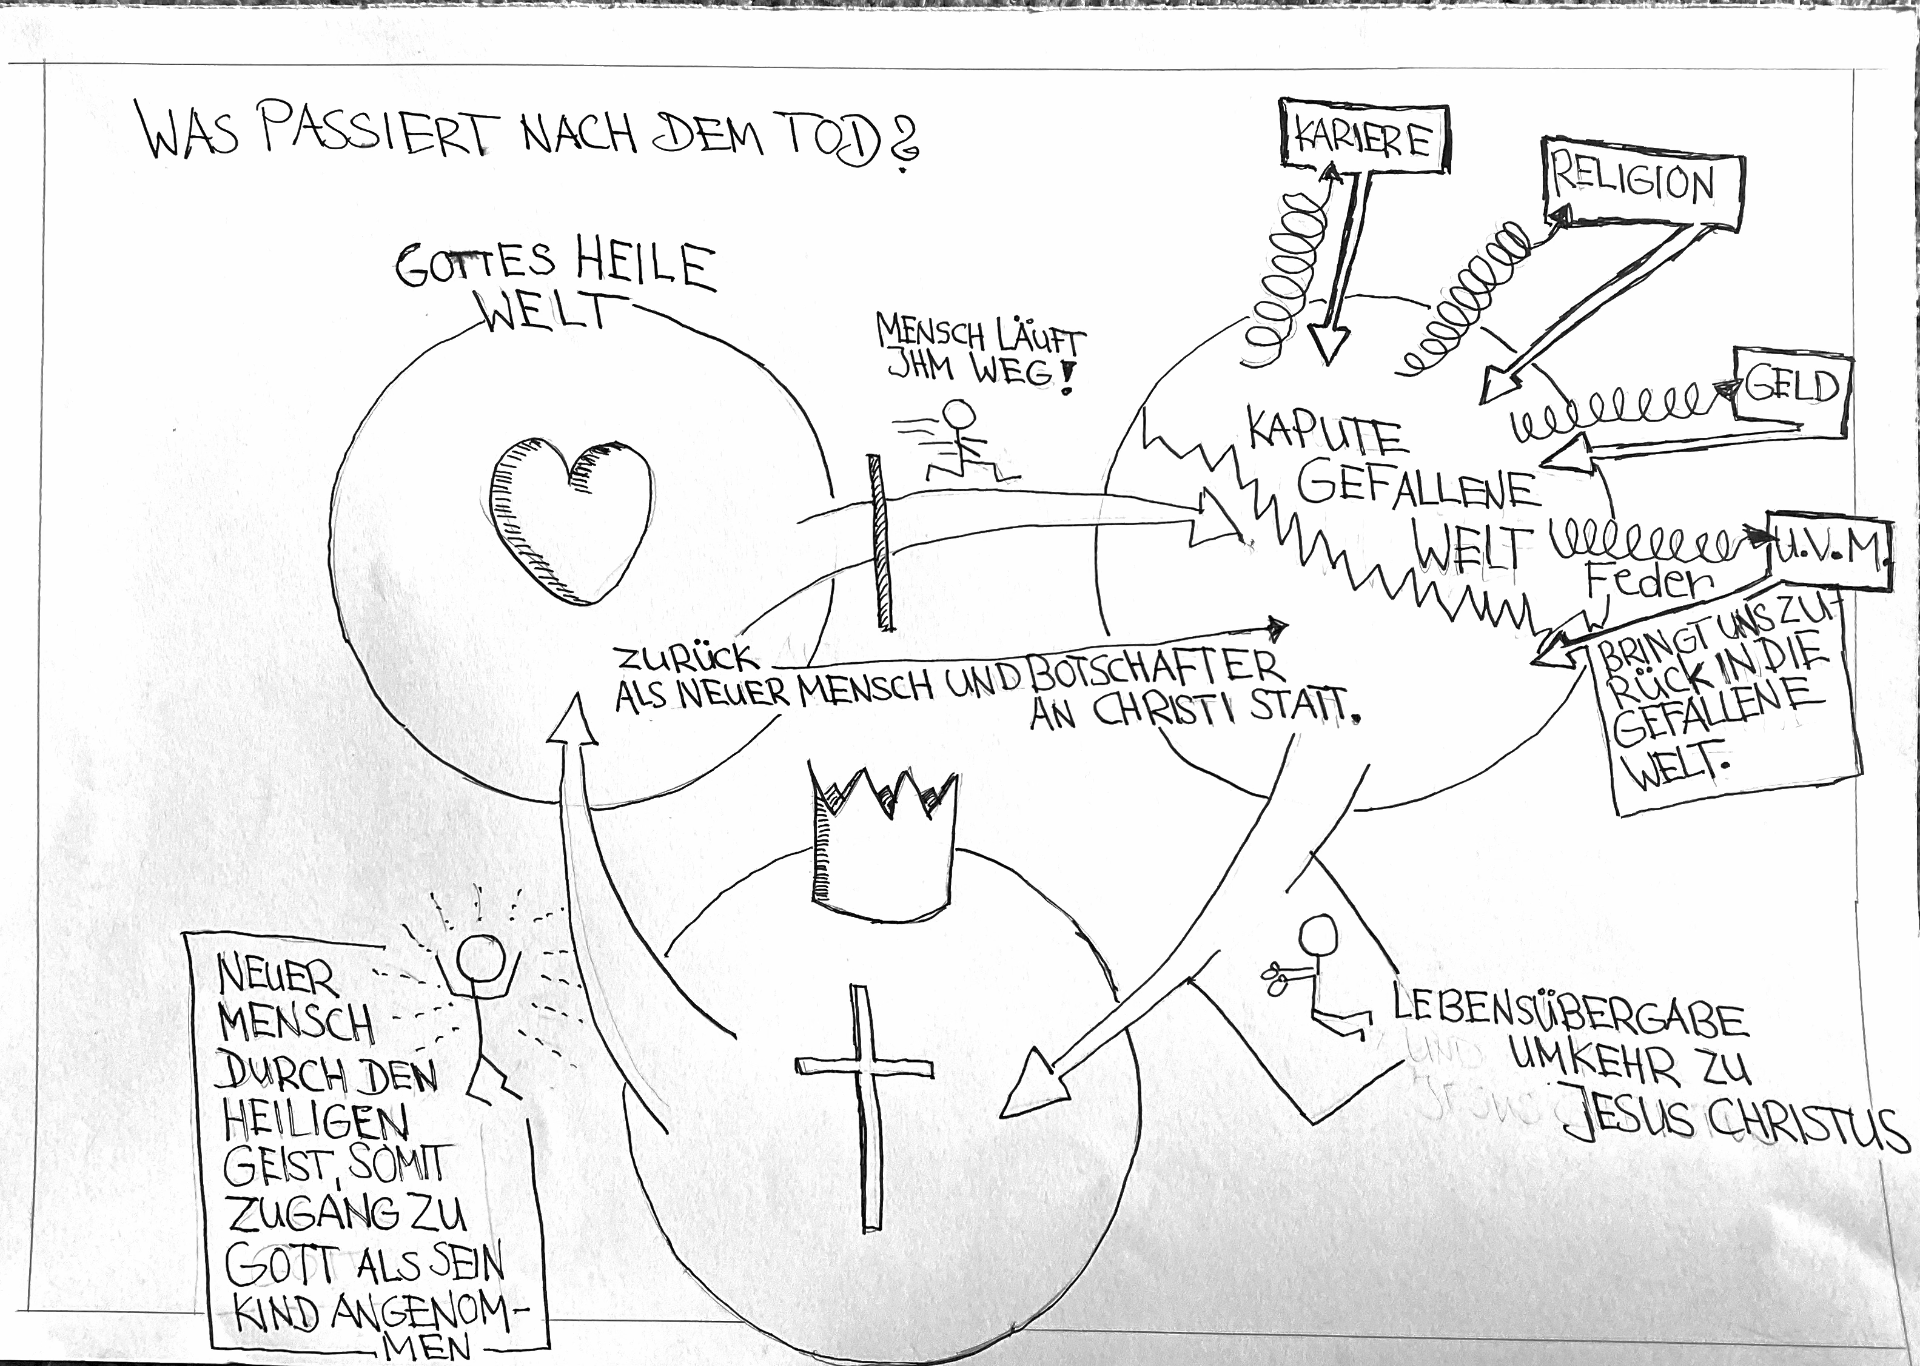 WAS PASSIERT NACH DEM TOD?
GOTTES HEILE
WELT
MENSCH LÄUFT
IHM WEG!
KARIERE
RELIGION
GELD
U.V.M.
KAPUTE
GEFALLENE
WELT
Feder
BRINGT UNS ZU-
RÜCK IN DIE
GEFALLENE
WELT.
ZURÜCK
ALS NEUER MENSCH UND BOTSCHAFTER
AN CHRISTI STATT.
LEBENSÜBERGABE
UND UMKEHR ZU
JESUS CHRISTUS
NEUER
MENSCH
DURCH DEN
HEILIGEN
GEIST, SOMIT
ZUGANG ZU
GOTT ALS SEIN
KIND ANGENOM-
MEN